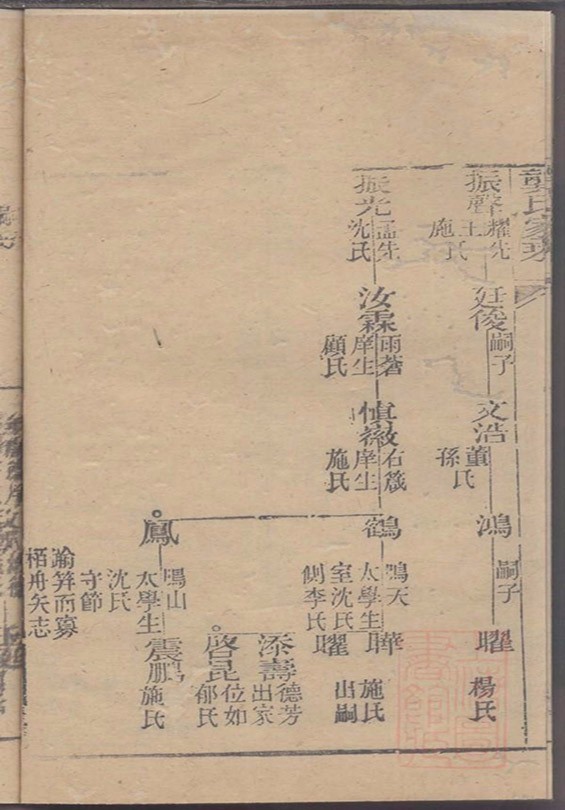 龔氏家乘
振聲
耀先
王氏
施氏
廷俊
嗣子
文浩
董氏
孫氏
鴻
嗣子
曜
楊氏
振先
孟先
沈氏
汝霖
雨蒼
庠生
顧氏
慎徽
石箴
庠生
施氏
鶴
鳴天
太學生
室沈氏
側李氏
曄
施氏
曜
出嗣
添壽
德芳
出家
啓昆
位如
郁氏
鳳
鳴山
太學生
沈氏
守節
踰笄而寡
栢舟矢志
震鵬
施氏